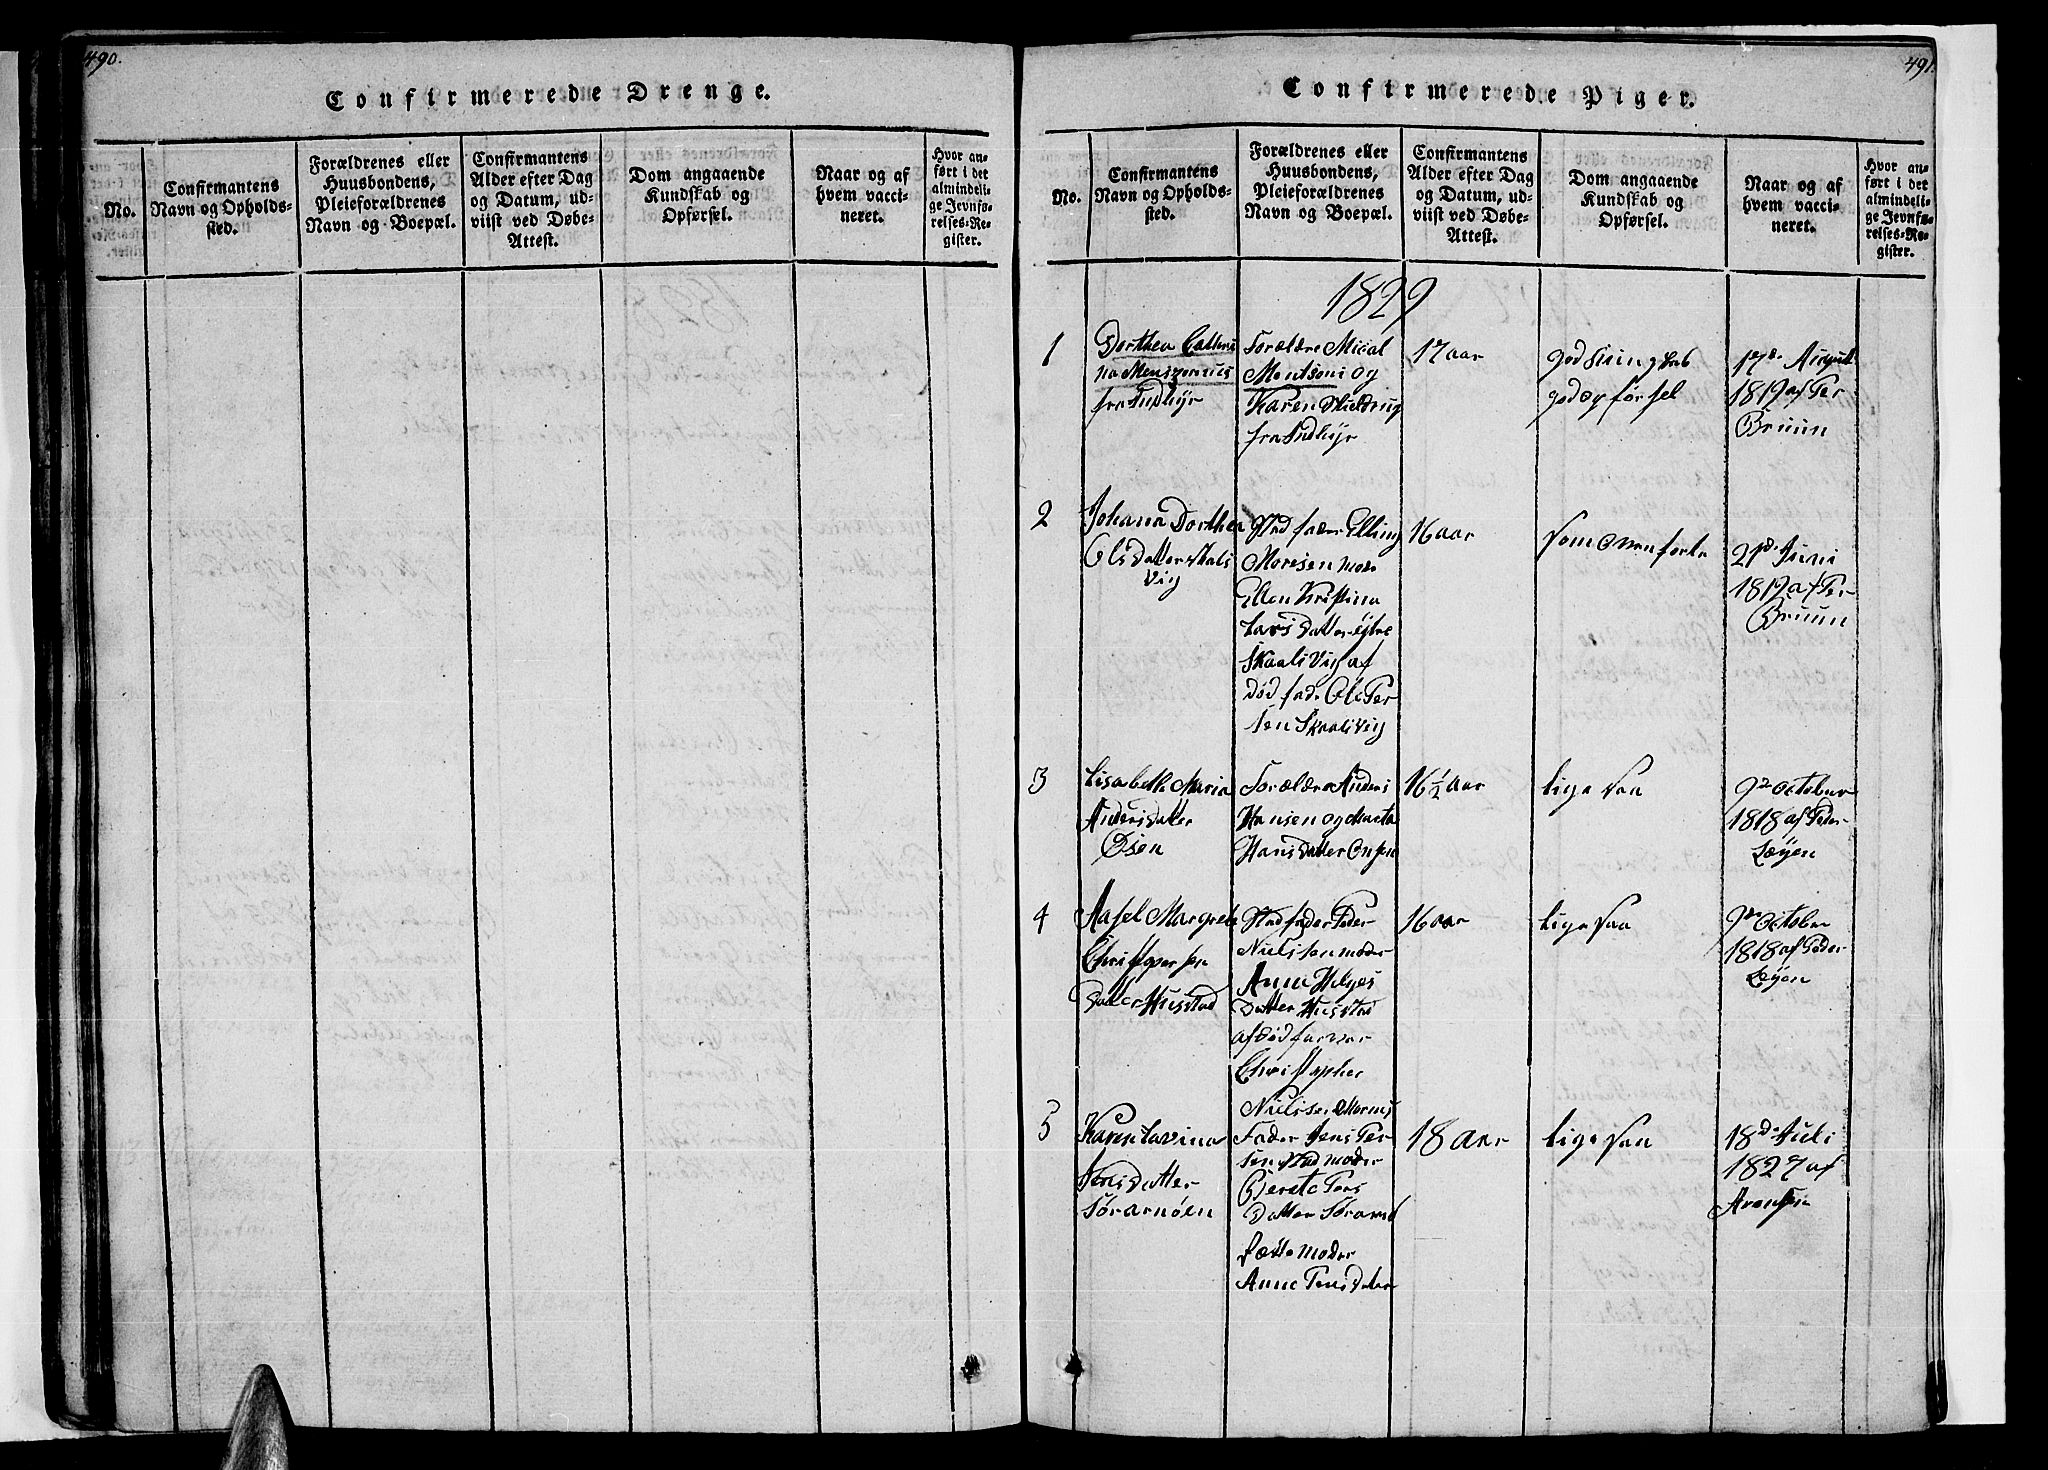 490.
Confirmerede Drenge.
No.
Confirmantens
Navn og Opholds-
sted.
Forældrenes eller
Huusbondens,
Pleieforældrenes
Navn og Boepæl.
Confirmantens
Alder efter Dag
og Datum, ud-
viist ved Døbe-
Attest.
Dom angaaende
Kundskab og
Opførsel.
Naar og af
hvem vacci-
neret.
Hvor an-
ført i det
almindeli-
ge Jevnfø-
relses-Re-
gister.
491.
Confirmerede Piger.
No.
Confirmantens
Navn og Opholds-
sted.
Forældrenes eller
Huusbondens,
Pleieforældrenes
Navn og Boepæl.
Confirmantens
Alder efter Dag
og Datum, ud-
viist ved Døbe-
Attest.
Dom angaaende
Kundskab og
Opførsel.
Naar og af
hvem vacci-
neret.
Hvor an-
ført i det
almindeli-
ge Jevnfø-
relses-Re-
gister.
1829
1
Dorthea Cathri
na
fra Indhyr
Forældre Mical
Montsons og
Karen Skieldrug
fra Indhyr
17 aar
god
god opførsel
17de August
1819 af Per
Bruun
2
Johana Dorthea
Olsdatter Skals
vig
Stedfader Elling
Moresen moder
Ellen Kristina
Larsdatter
Skaalsvig af
død fader Ole Per
sen Skaalsvig
16 aar
som ovenforte
21de Juni
1819 af Per
Bruun
3
Lisabeth Maria
Andersdatter
Øsen
Forældre Anders
Hansen og Marta
Hansdatter
16 1/2 aar
lige saa
9de October
1818 af Peder
Løyen
4
Aasel Margrete
Christopersen
datter Husstad
Stedfader Peder
Nielssen moder
Anna Helges
datter Husstad
afdød farvar
Christopher
Nielssen
16 aar
lige saa
9de October
1818 af Peder
Løyen
5
Karen Lavina
Jensdatter
Sørarnöen
Fader Jens Per
sen Sted moder
Berete Pers
datter Sørarnö
Rætte moder
Anne Pensdater
18 aar
lige saa
18de Juli
1827 af
Arentsen